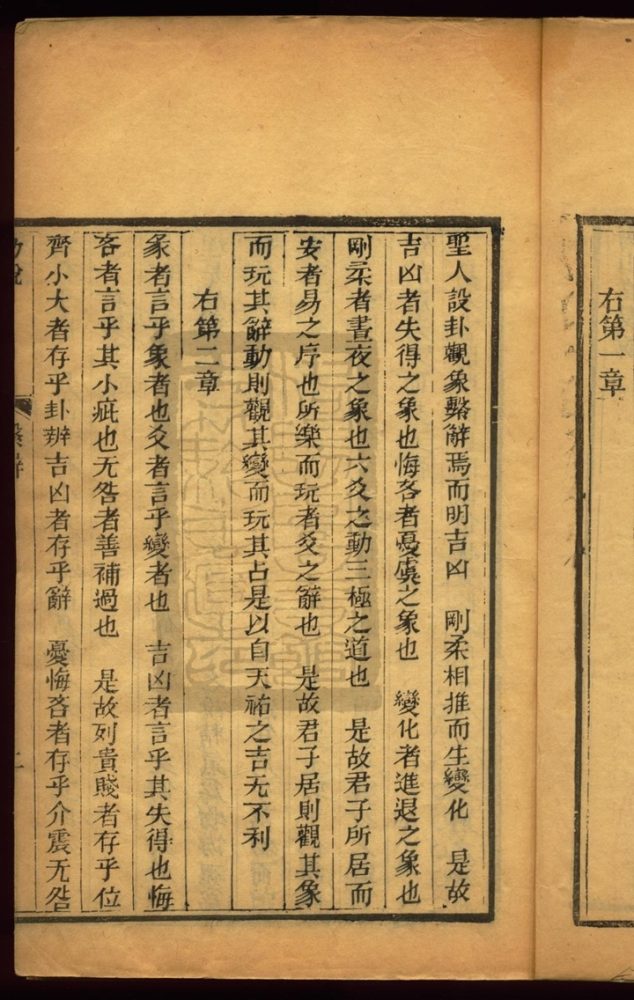 右第一章
聖人設卦觀象繫辭焉而明吉凶　剛柔相推而生變化　是故
吉凶者失得之象也悔吝者憂虞之象也　變化者進退之象也
剛柔者晝夜之象也六爻之動三極之道也　是故君子所居而
安者易之序也所樂而玩者爻之辭也　是故君子居則觀其象
而玩其辭動則觀其變而玩其占是以自天祐之吉无不利
右第二章
彖者言乎象者也爻者言乎變者也　吉凶者言乎其失得也悔
吝者言乎其小疵也无咎者善補過也　是故列貴賤者存乎位
齊小大者存乎卦辨吉凶者存乎辭　憂悔吝者存乎介震无咎